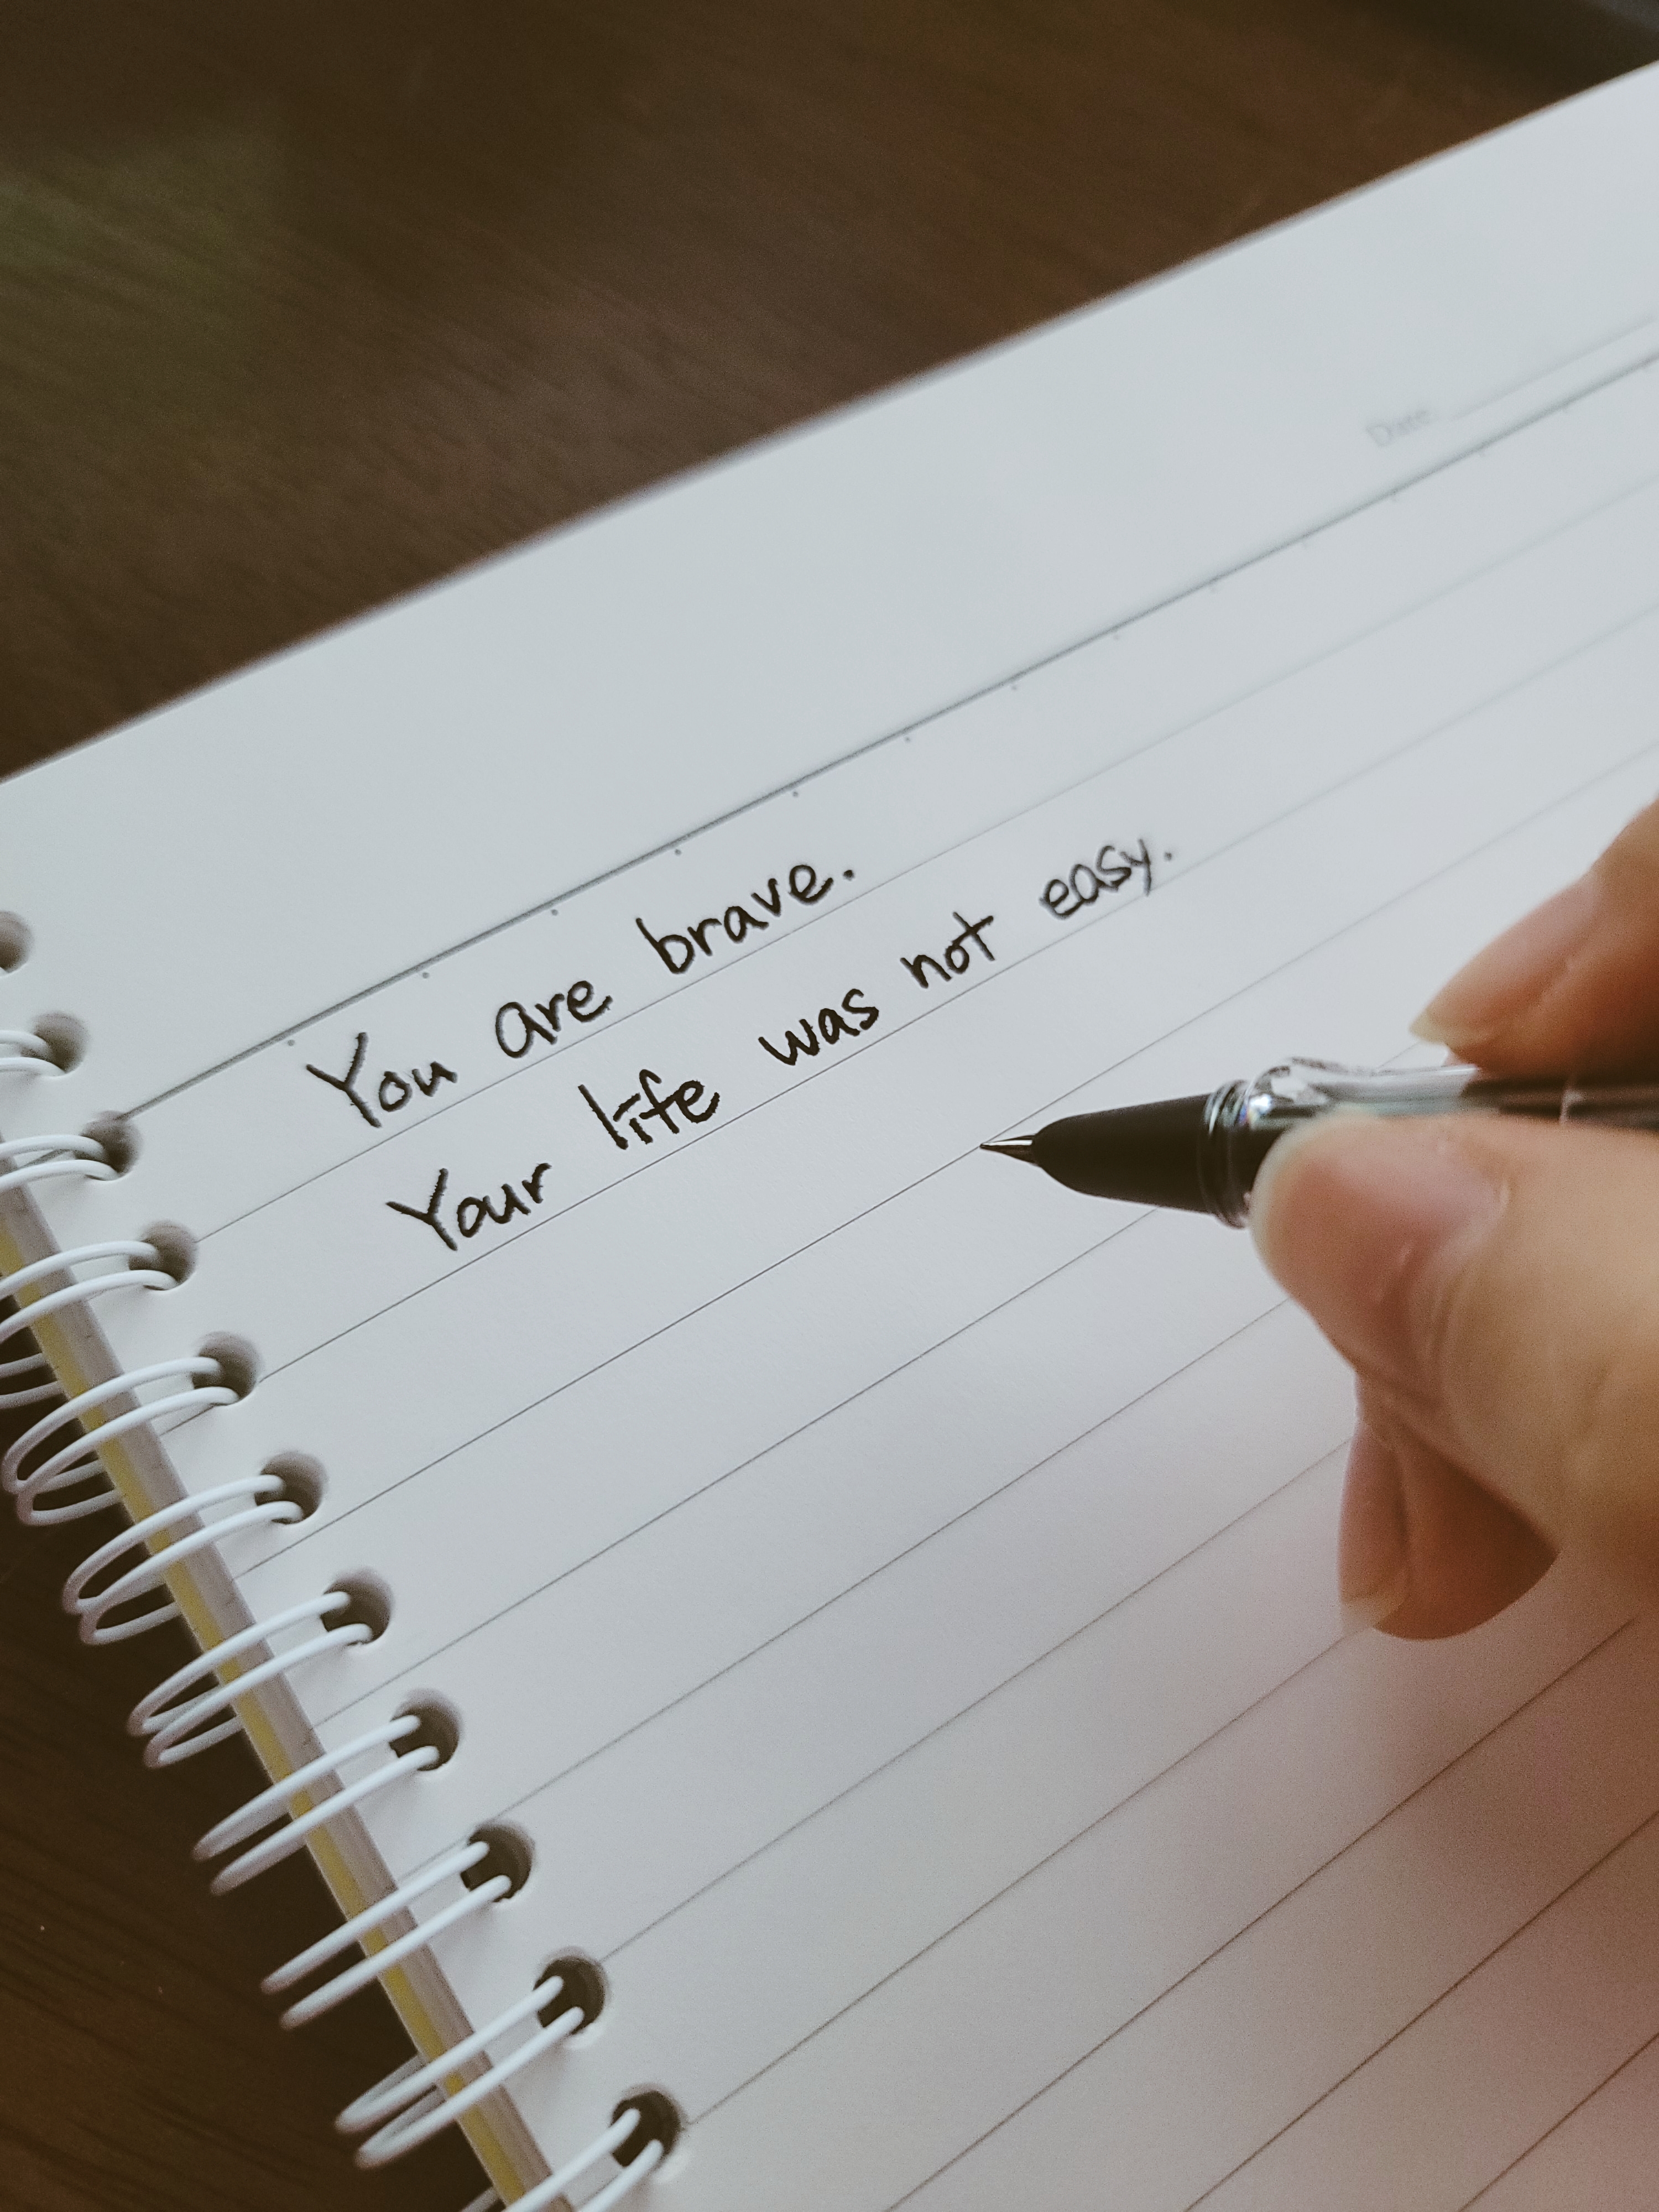 Date.
You are brave.
Your life was not easy.